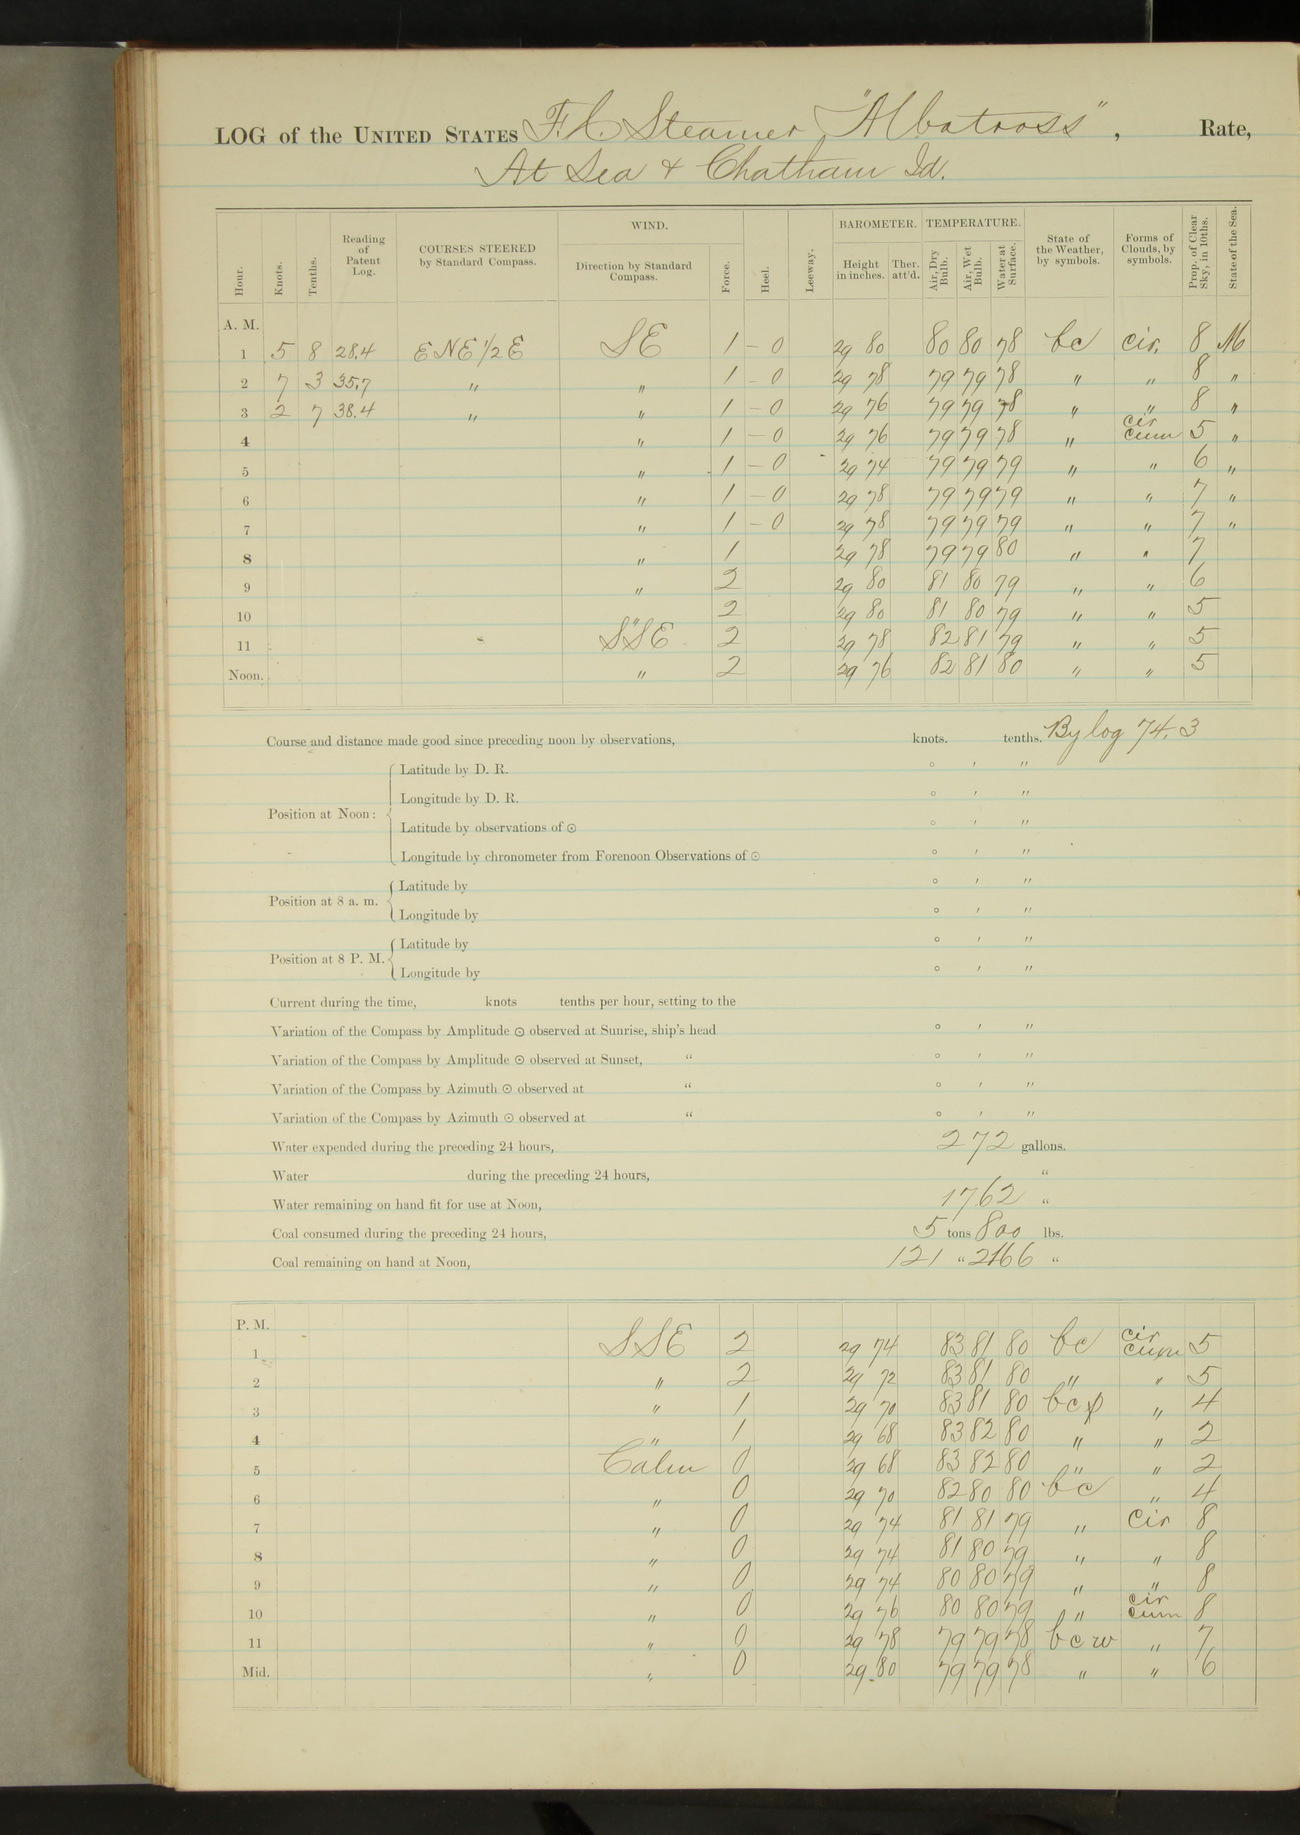 LOG of the UNITED STATES F.C. Steamer "Albatross", Rate,
At Sea & Chatham Id.
Hour. Knots. Tenths. Reading of Patent Log. COURSES STEERED by Standard Compass. WIND. Direction by Standard Compass. Force. Heel. Leeway. BAROMETER. Height in inches. Ther. att'd. TEMPERATURE. Air, Dry Bulb. Air, Wet Bulb. Water at Surface. State of the Weather, by symbols. Forms of Clouds, by symbols. Prop. of Clear Sky, in 10ths. State of the Sea.
A. M.
1 5 8 28.4 ENE 1/2 E SE 1 - 0 29 80 80 80 78 bc cir. 8 M
2 7 3 35.7 " " 1 - 0 29 78 79 79 78 " " 8 "
3 2 7 38.4 " " 1 - 0 29 76 79 79 78 " " 8 "
4 " 1 - 0 29 76 79 79 78 " cir cum 5 "
5 " 1 - 0 29 74 79 79 79 " " 6 "
6 " 1 - 0 29 78 79 79 79 " " 7 "
7 " 1 - 0 29 78 79 79 79 " " 7 "
8 " 1 29 78 79 79 80 " " 7
9 " 2 29 80 81 80 79 " " 6
10 " 2 29 80 81 80 79 " " 5
11 SSE 2 29 78 82 81 79 " " 5
Noon. " 2 29 76 82 81 80 " " 5
Course and distance made good since preceding noon by observations, knots. tenths. By log 74.3
Position at Noon: Latitude by D. R. ° ′ ″
Longitude by D. R. ° ′ ″
Latitude by observations of ☉ ° ′ ″
Longitude by chronometer from Forenoon Observations of ☉ ° ′ ″
Position at 8 a. m. Latitude by ° ′ ″
Longitude by ° ′ ″
Position at 8 P. M. Latitude by ° ′ ″
Longitude by ° ′ ″
Current during the time, knots tenths per hour, setting to the
Variation of the Compass by Amplitude ☉ observed at Sunrise, ship's head ° ′ ″
Variation of the Compass by Amplitude ☉ observed at Sunset, " ° ′ ″
Variation of the Compass by Azimuth ☉ observed at " ° ′ ″
Variation of the Compass by Azimuth ☉ observed at " ° ′ ″
Water expended during the preceding 24 hours, 272 gallons.
Water during the preceding 24 hours, "
Water remaining on hand fit for use at Noon, 1762 "
Coal consumed during the preceding 24 hours, 5 tons 800 lbs.
Coal remaining on hand at Noon, 121 " 2166 "
P. M.
1 SSE 2 29 74 83 81 80 bc cir cum 5
2 " 2 29 72 83 81 80 " " 5
3 " 1 29 70 83 81 80 bcp " 4
4 " 1 29 68 83 82 80 " " 2
5 Calm 0 29 68 83 82 80 " " 2
6 " 0 29 70 82 80 80 bc " 4
7 " 0 29 74 81 81 79 " Cir 8
8 " 0 29 74 81 80 79 " " 8
9 " 0 29 74 80 80 79 " " 8
10 " 0 29 76 80 80 79 " cir cum 8
11 " 0 29 78 79 79 78 bcw " 7
Mid. " 0 29.80 79 79 78 " " 6